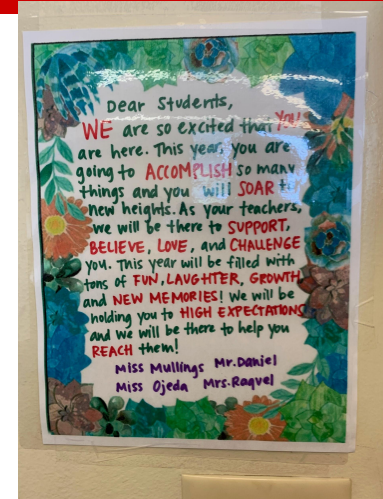 Dear Students,
WE are so excited that YOU
are here. This year, you are
going to ACCOMPLISH so many
things and you will SOAR to
new heights. As your teachers,
we will be there to SUPPORT,
BELIEVE, LOVE, and CHALLENGE
you. This year will be filled with
tons of FUN, LAUGHTER, GROWTH
and NEW MEMORIES! We will be
holding you to HIGH EXPECTATIONS
and we will be there to help you
REACH them!
Miss Mullings Mr.Daniel
Miss Ojeda Mrs.Raquel